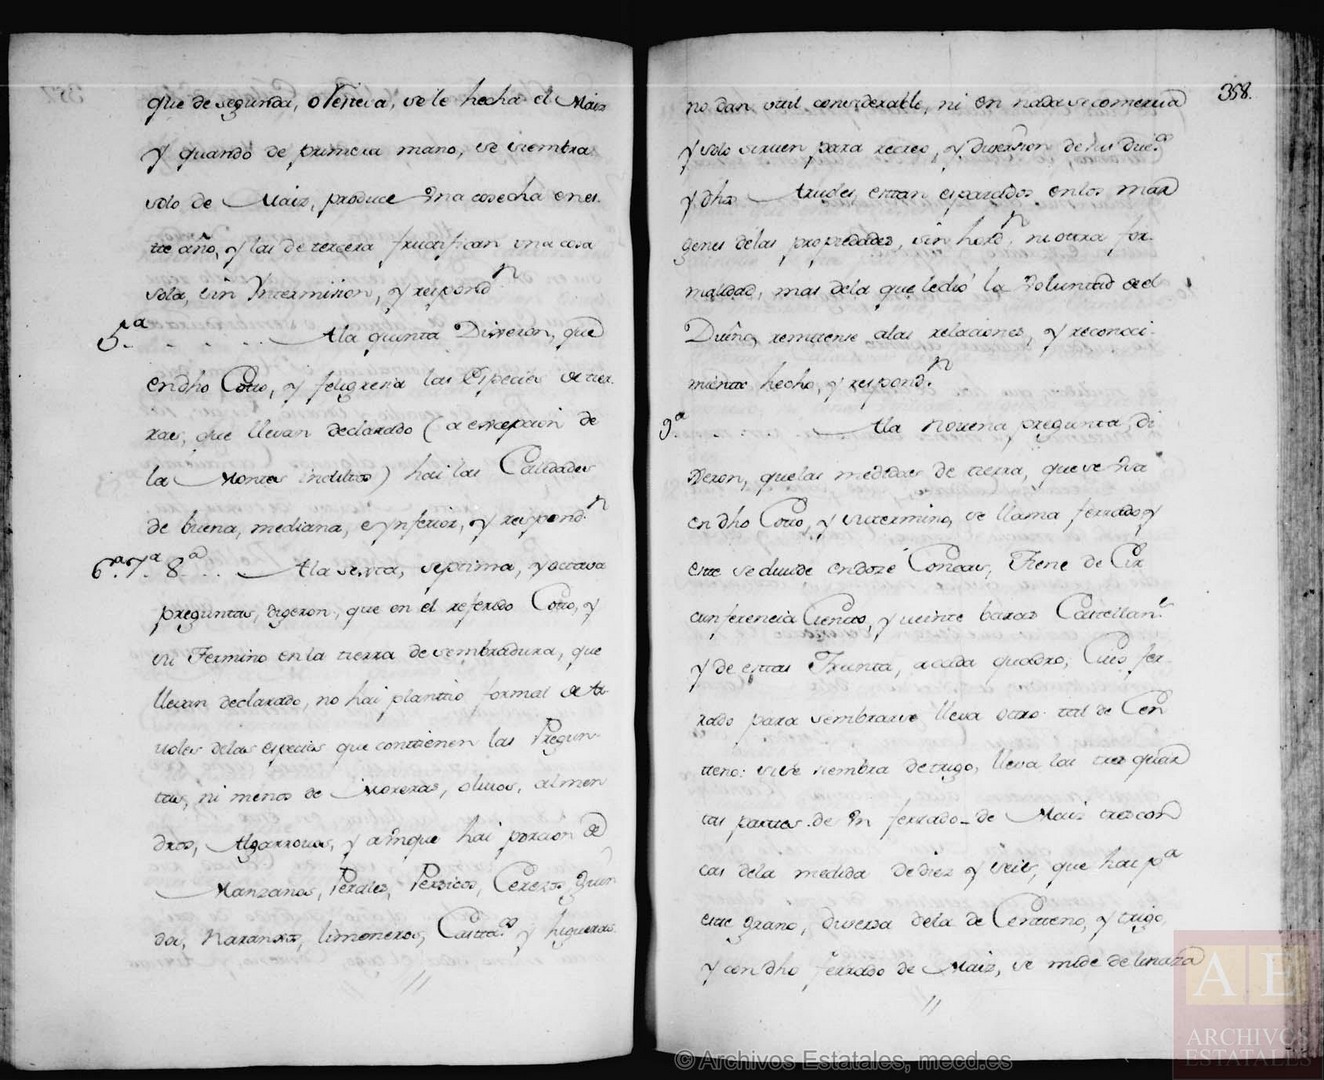 que de segunda, o terzera, se le hecha el Maiz
y quando de primera mano, se siembra
solo de Maiz, produce Una cosecha enes
tte año, y las de tercera fructifican una cosa
sola, sin Yntermision, y respondn
5a Ala quinta Dixeron, que
endho Cotto, y feligresia las Especies de tier
ras, que llevan declarado (a excepcion de
la Montes inditos) hai las Calidades
de buena, mediana, e ynferior, y respondn
6a 7a 8a Ala sexta, septima, y octava
preguntas, digeron, que en el referido Cotto, y
su Termino en la tierra de sembradura, que
llevan declarado, no hai plantio formal de Ar
voles delas especies que contienen las Pregun
tas, ni menos de Moreras, olivos, almen
dros, Algarrovas, y aunque hai porcion de
Manzanos, Perales, Persicos, Cerezos Guin
dos, Naranxos, limoneros, Casttas y higueras
no dan util considerable, ni en nada se comercia
y solo sirven para recreo, y Diversion de sus Dueos
y dhos Arvoles, esttan esparcidos enlos mar
genes delas propiedades, sin hordn ni otra for
malidad, mas dela que ledio la Voluntad del
Dueño, remitense alas relaciones, y reconoci
miento hecho, y respondn
9a Ala Novena pregunta, Di
xeron, quelas medidas de tierra, que se usa
en dho Cotto, y su termino, se llama ferrado, y
este se divide endoze Concas, Tiene de Cir
cunferencia Ciento, y veinte baras Castellans
y de estas Trinta, a cada quadro, Cuio fer
rado para sembrarse lleva otro tal de Cen
tteno: si se siembra detrigo, lleva las tres quar
tas partes de Un ferrado de Maiz tres con
cas dela medida de diez y seis, que hai pa
este grano, diversa dela de Centteno, y trigo,
y con dho ferrado de Maiz, se mide de linaza
358.
© Archivos Estatales, mecd.es
AE
ARCHIVOS
ESTATALES